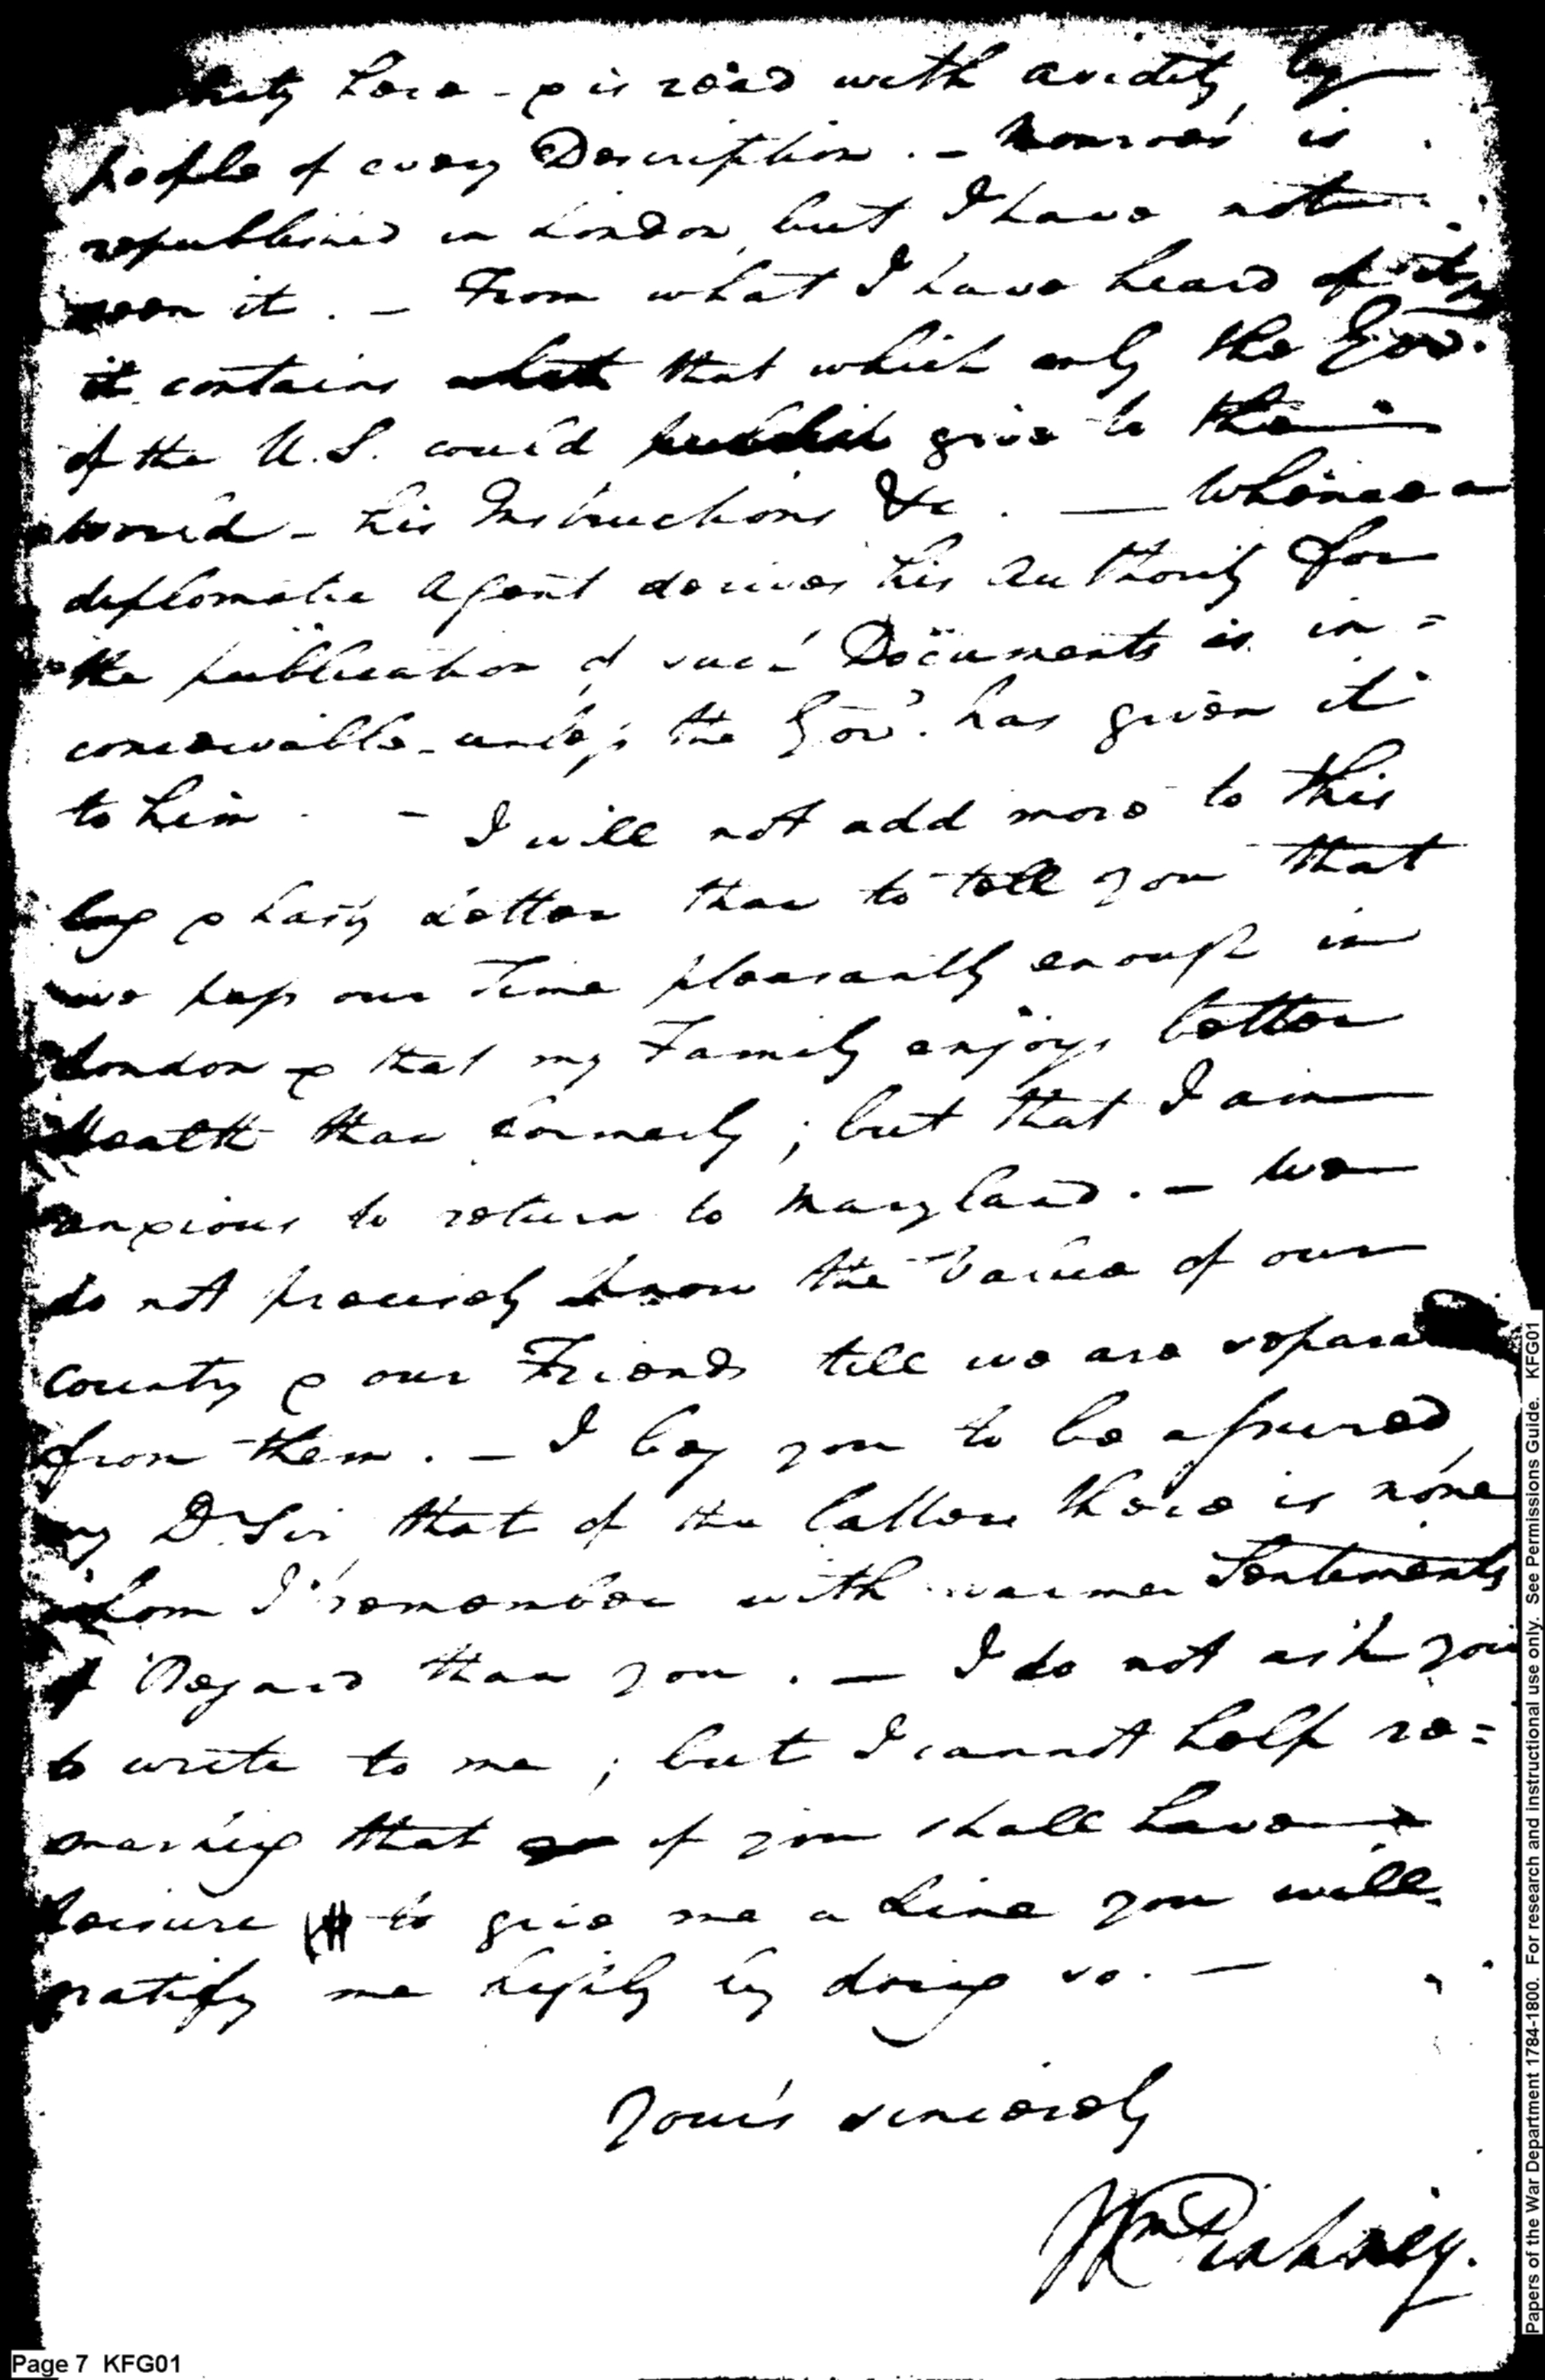 here - & is read with avidity by
people of every Description. - Monroe's is
republished in London, but I have not
seen it. - From what I have heard of it,
it contains that which only the Gov.
of the U.S. could publish give to the
world - his Instructions &c. — Whence a
diplomatic Agent derives his Authority for
the publication of such Documents is in=
conceivable - unless the Gov.t has given it
to him. - I will not add more to this
long & hasty Letter than to tell you that
we pass our Time pleasantly enough in
London & that my Family enjoys better
Health than formerly; but that I am
anxious to return to Maryland. - We
do not precisely know the Value of our
Country & our Friends till we are separa
from them. - I beg you to be assured
my Dr Sir that of the latter there is none
whom I remember with warmer Sentiments
of Regard than you. - I do not ask you
to write to me; but I cannot help re=
marking that if you shall have
Leisure to give me a Line you will
gratify me highly by doing so. -
Yours sincerely
Wm Pinkney.
Page 7 KFG01
Papers of the War Department 1784-1800. For research and instructional use only. See Permissions Guide. KFG01